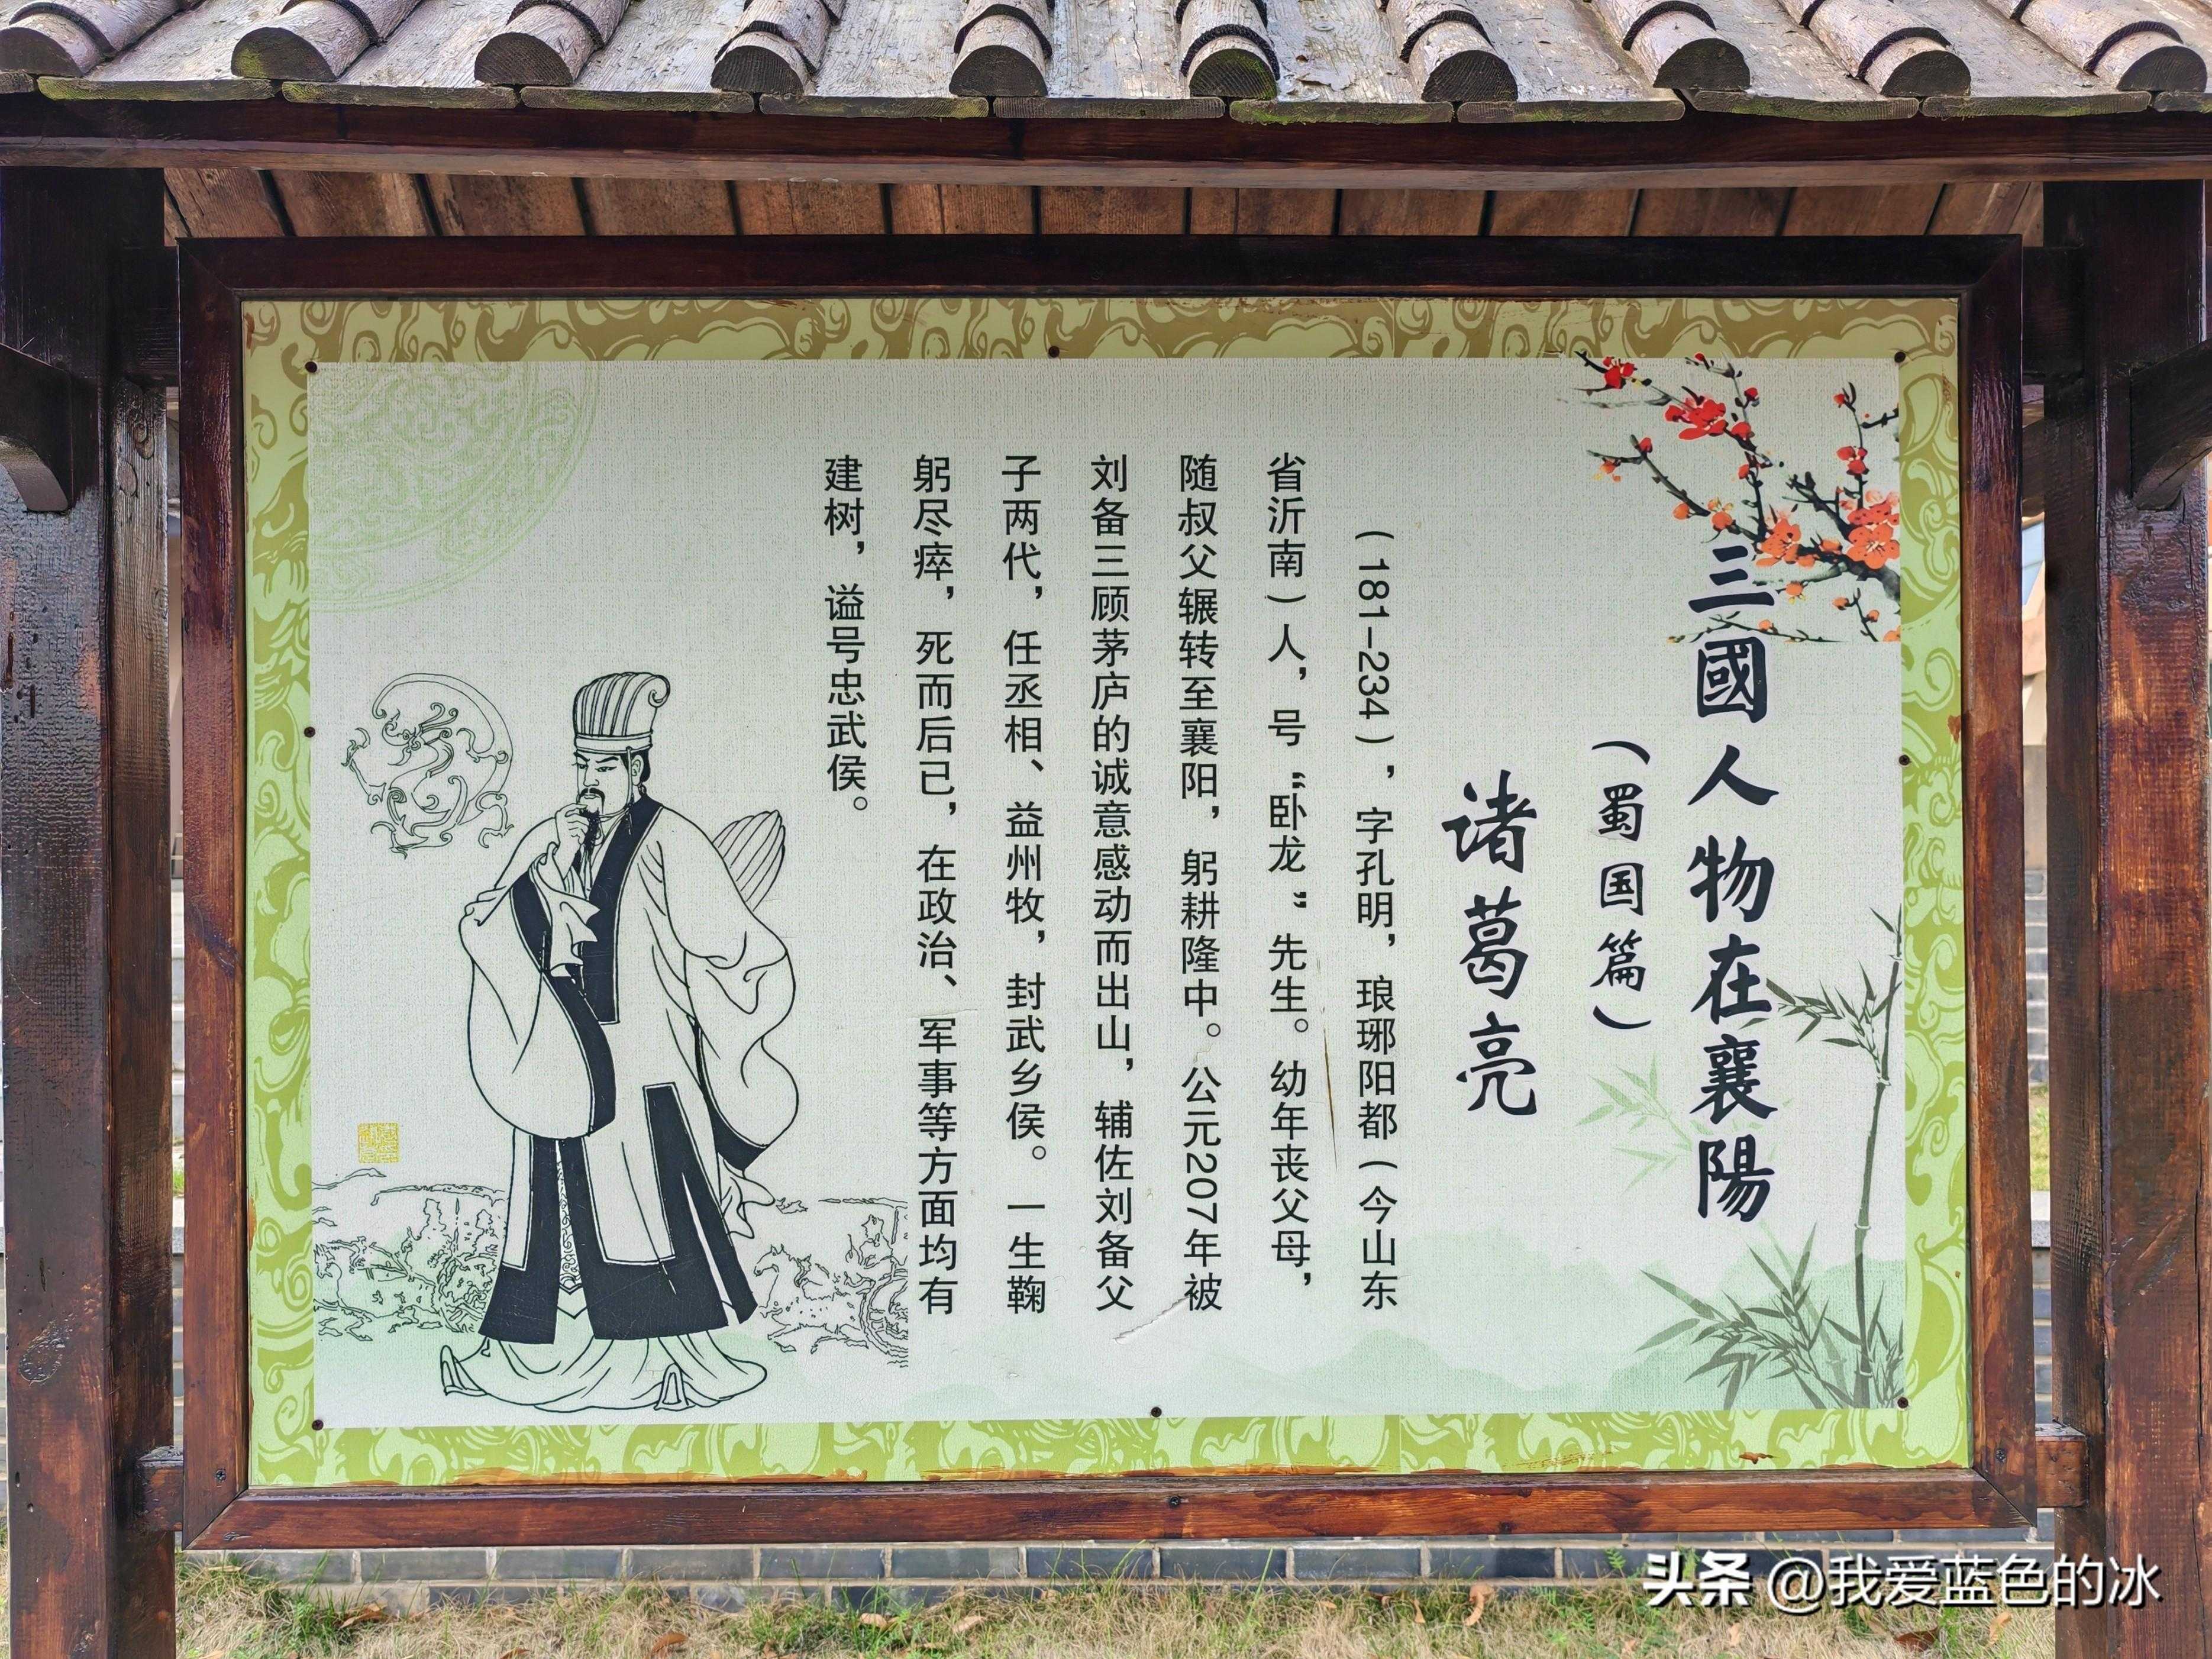 三國人物在襄陽
（蜀国篇）
诸葛亮
（181-234），字孔明，琅琊阳都（今山东
省沂南）人，号“卧龙”先生。幼年丧父母，
随叔父辗转至襄阳，躬耕隆中。公元207年被
刘备三顾茅庐的诚意感动而出山，辅佐刘备父
子两代，任丞相、益州牧，封武乡侯。一生鞠
躬尽瘁，死而后已，在政治、军事等方面均有
建树，谥号忠武侯。
头条 @我爱蓝色的冰